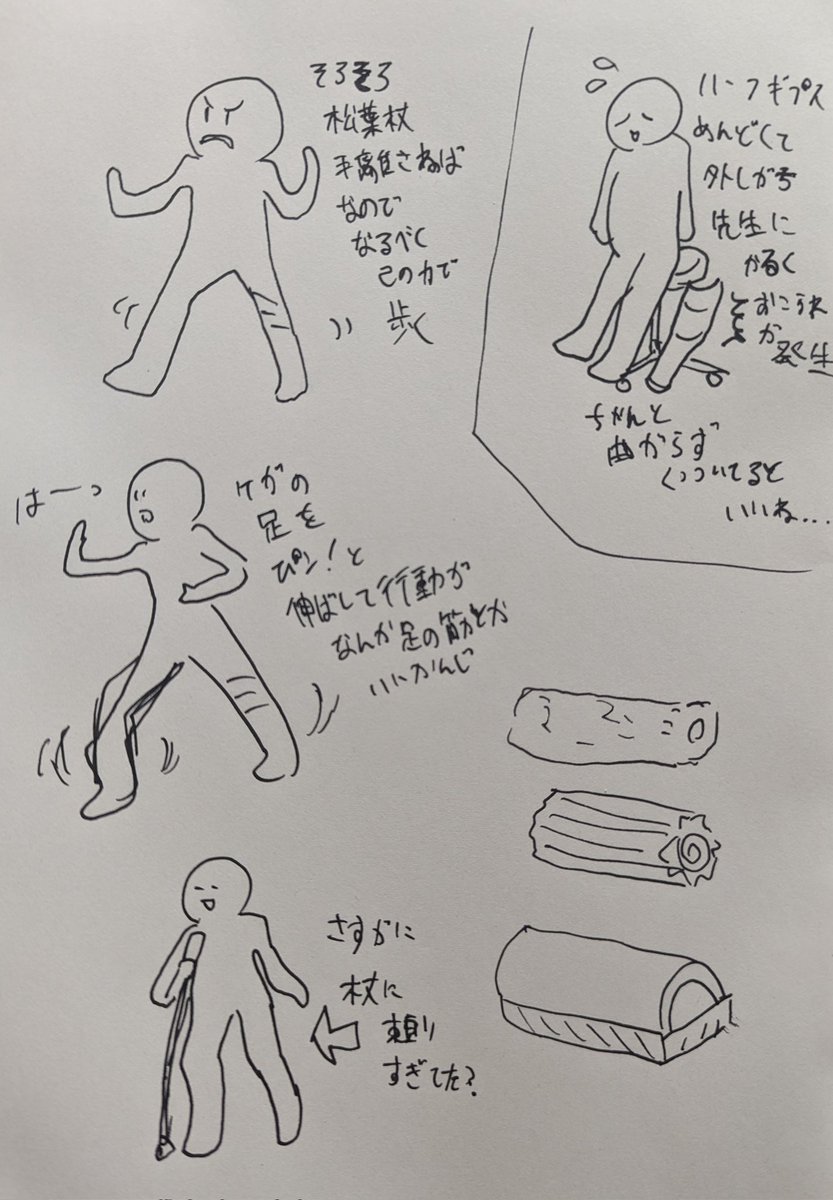 そろそろ
松葉杖
手離さねば
なので
なるべく
己の力で
歩く
ハーフギプス
めんどくて
外しがち
先生に
かるく
おこられ
が発生
ちゃんと
曲がらず
くっついてると
いいね...
はーっ
ケガの
足を
ピン!と
伸ばして行動が
なんか足の筋とか
いいかんじ
さすがに
杖に
頼り
すぎてた?